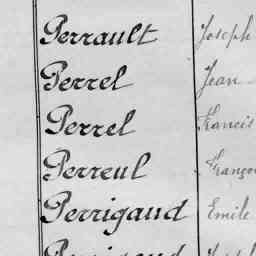 Perrault Joseph
Perrel Jean
Perrel Francis
Perreul
Perrigaud Emile